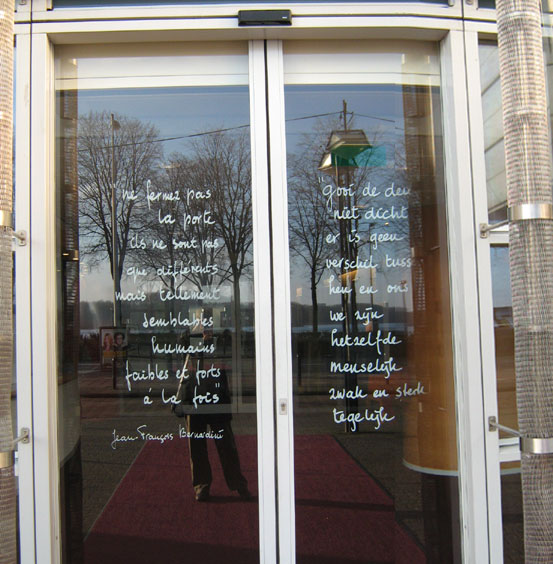 "ne fermez pas
la porte
ils ne sont pas
que différents
mais tellement
semblables
humains
faibles et forts
à la fois"
Jean-François Bernardini
"gooi de deu
niet dicht
er is geen
verschil tuss
hen en ons
we zijn
hetzelfde
menselijk
zwak en sterk
tegelijk